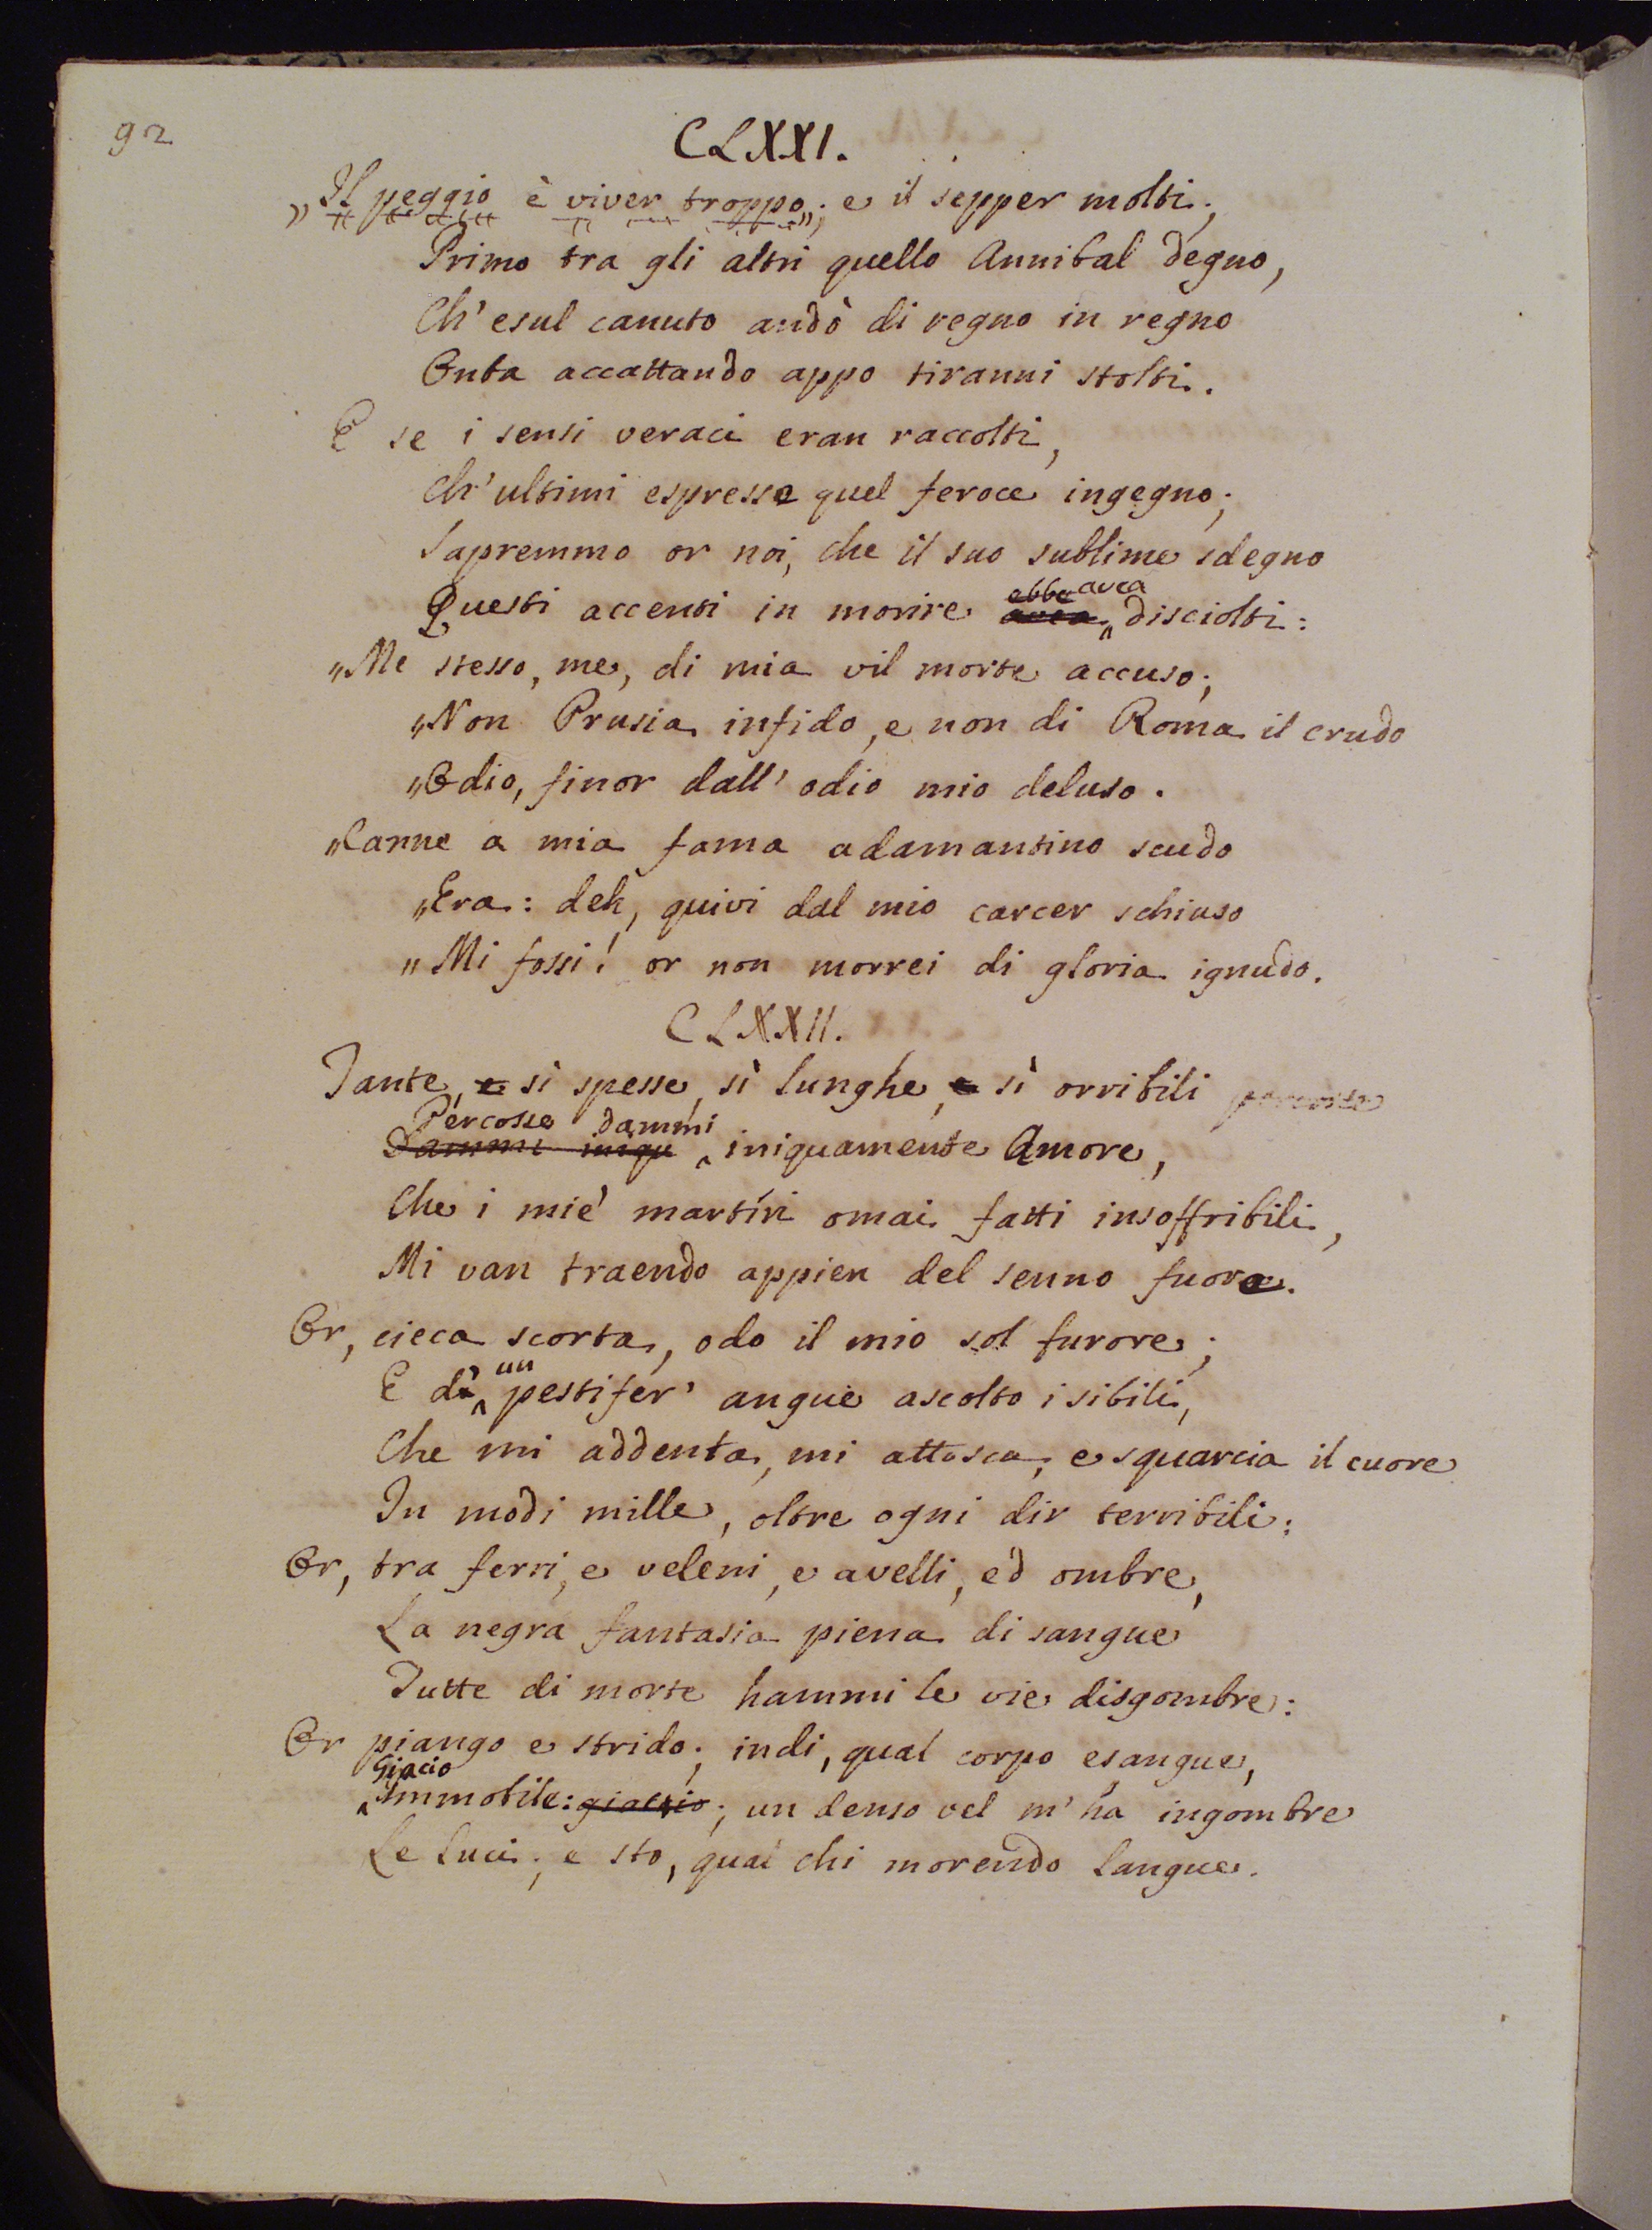 92
CLXXI.
„Il peggio è viver troppo„; e il sepper molti;
Primo tra gli altri quello Annibal degno,
Ch'esul canuto andò di regno in regno
Onta accattando appo tiranni stolti.
E se i sensi veraci eran raccolti,
Ch'ultimi espresse quel feroce ingegno;
Sapremmo or noi, che il suo sublime sdegno
ebbe avea
Questi accenti in morire avea ‸ disciolti:
„Me stesso, me, di mia vil morte accuso;
„Non Prusia infido, e non di Roma il crudo
„Odio, finor dall'odio mio deluso.
„Canne a mia fama adamantino scudo
„Era: deh, quivi dal mio carcer schiuso
„Mi fossi! or non morrei di gloria ignudo.
CLXXII.
Tante, e sì spesse, sì lunghe, e sì orribili percosse
Percosse dammi
Dammi iniqu ‸ iniquamente Amore,
Che i mie' martíri omai fatti insoffribili,
Mi van traendo appien del senno fuore.
Or, cieca scorta, odo il mio sol furore;
un
E di ‸ pestifer' angue ascolto i sibili,
Che mi addenta, mi attosca, e squarcia il cuore
In modi mille, oltre ogni dir terribili:
Or, tra ferri, e veleni, e avelli, ed ombre,
La negra fantasia piena di sangue
Tutte di morte hammi le vie disgombre:
Or piango e strido; indi, qual corpo esangue,
Giacio
‸ Immobile: giaccio; un denso vel m'ha ingombre
Le luci; e sto, qual chi morendo langue.